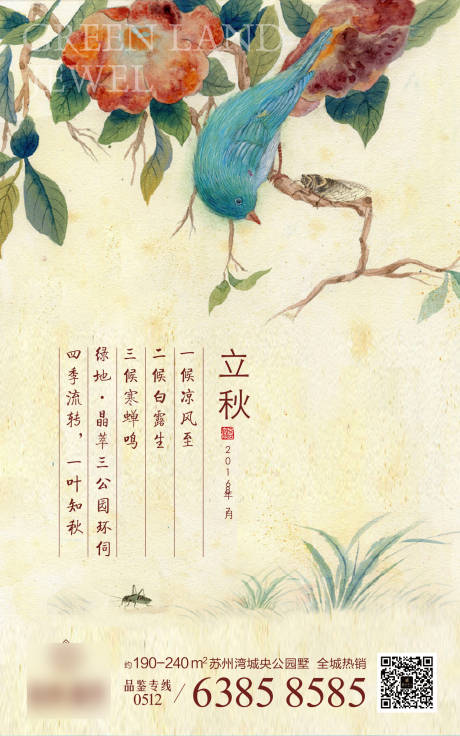 GREEN LAND
JEWEL
立秋
2016年
一候凉风至
二候白露生
三候寒蝉鸣
绿地·晶萃三公园环伺
四季流转，一叶知秋
约190-240m²苏州湾城央公园墅 全城热销
品鉴专线
0512
/
6385 8585